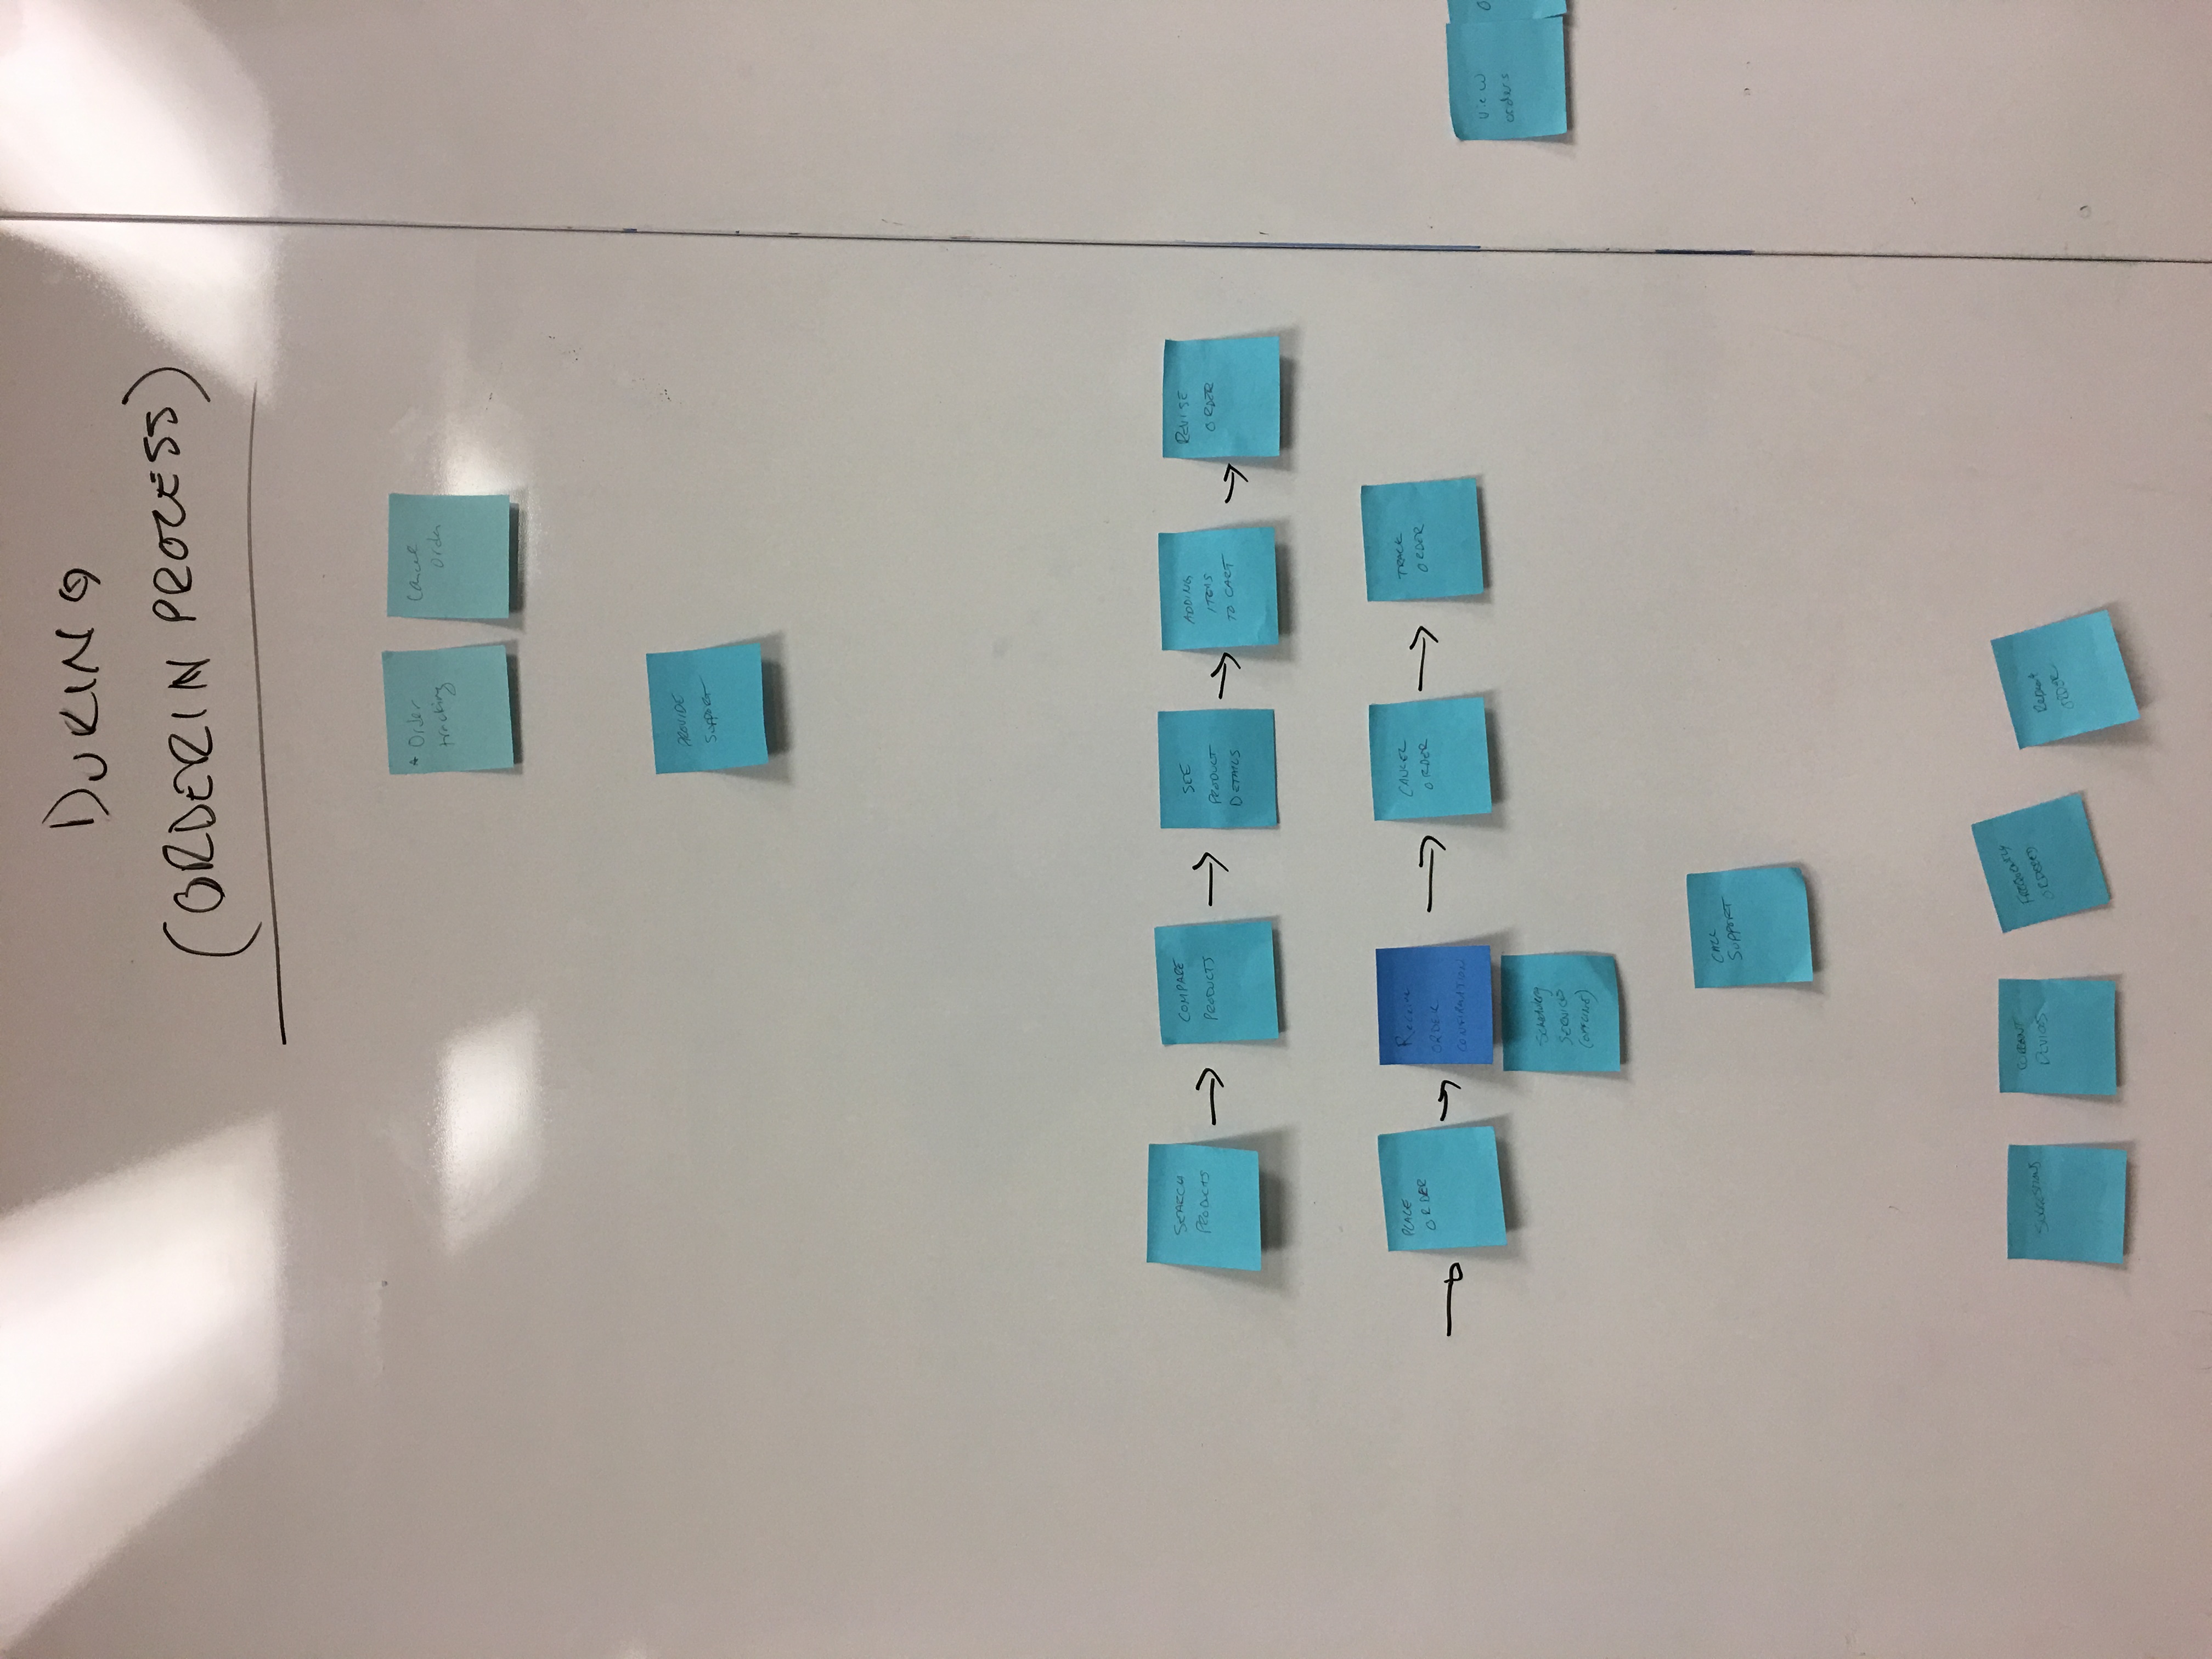 DURING
(ORDERIN PROCESS)
* Order
tracking
Cancel
Order
PROVIDE
SUPPORT
SEARCH
PRODUCTS
COMPARE
PRODUCTS
SEE
PRODUCT
DETAILS
ADDING
ITEMS
TO CART
REVISE
ORDER
PLACE
ORDER
RECEIVE
ORDER
CONFIRMATION
CANCEL
ORDER
TRACK
ORDER
View
orders
O
SCHEDULING
SERVICES
(OFFLINE)
CALL
SUPPORT
SUGGESTIONS
CURRENT
DEVICES
FREQUENTLY
ORDERED
Repeat
ORDER